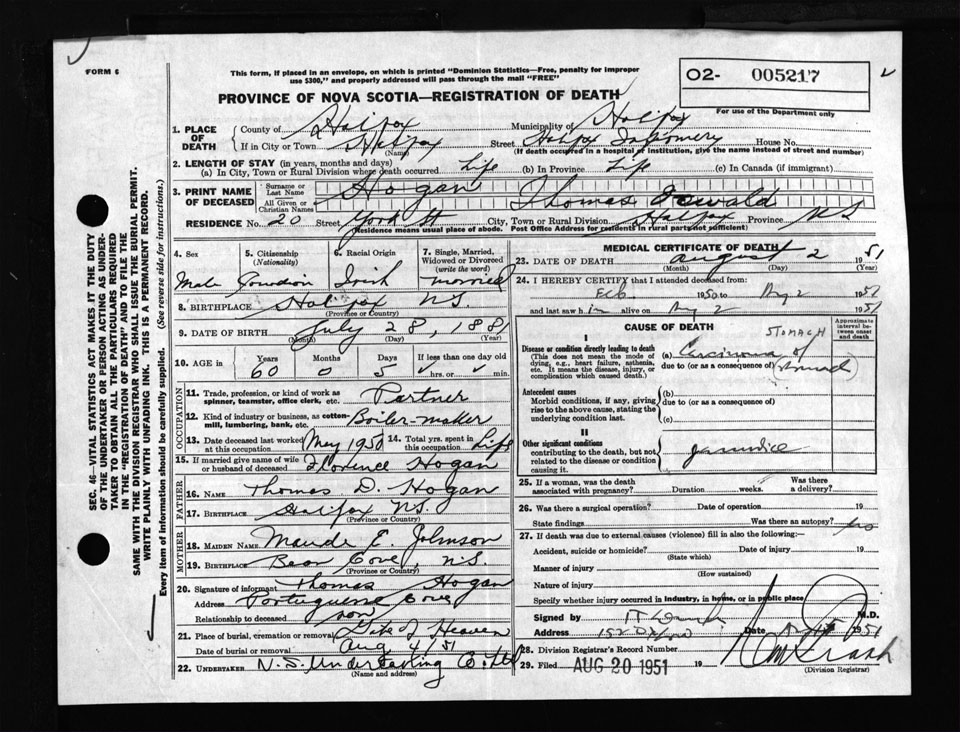 FORM 6
This form, if placed in an envelope, on which is printed "Dominion Statistics—Free, penalty for improper
use $300," and properly addressed will pass through the mail "FREE"
O2- 005217
For use of the Department only
PROVINCE OF NOVA SCOTIA—REGISTRATION OF DEATH
1. PLACE OF DEATH
County of Halifax Municipality of Halifax
If in City or Town Halifax Street Halifax Infirmary House No.
(Name) (If death occurred in a hospital or institution, give the name instead of street and number)
2. LENGTH OF STAY (in years, months and days)
(a) In City, Town or Rural Division where death occurred Life (b) In Province Life (c) In Canada (if immigrant)
3. PRINT NAME OF DECEASED
Surname or Last Name Hogan
All Given or Christian Names Thomas
RESIDENCE No. 20 Street York St City, Town or Rural Division Halifax Province N S
(Residence means usual place of abode. Post Office Address for residents in rural parts not sufficient)
4. Sex 5. Citizenship (Nationality) 6. Racial Origin 7. Single, Married, Widowed or Divorced (write the word)
Male Canadian Irish married
8. BIRTHPLACE Halifax N.S.
(Province or Country)
9. DATE OF BIRTH July 28, 1881
(Month) (Day) (Year)
10. AGE in Years Months Days If less than one day old
60 0 5 hrs. or min.
OCCUPATION
11. Trade, profession, or kind of work as spinner, teamster, office clerk, etc. Partner
12. Kind of industry or business, as cotton-mill, lumbering, bank, etc. Boiler-maker
13. Date deceased last worked at this occupation May 1950 14. Total yrs. spent in this occupation Life
15. If married give name of wife or husband of deceased Florence Hogan
FATHER
16. NAME Thomas D. Hogan
17. BIRTHPLACE Halifax N.S.
(Province or Country)
MOTHER
18. MAIDEN NAME Maude E. Johnson
19. BIRTHPLACE Bear Cove, N.S.
(Province or Country)
20. Signature of informant Thomas Hogan
Address Portuguese Cove
Relationship to deceased son
21. Place of burial, cremation or removal Gate of Heaven
Date of burial or removal Aug 4/51
22. UNDERTAKER N.S. Undertaking Co. Ltd
(Name and address)
MEDICAL CERTIFICATE OF DEATH
23. DATE OF DEATH August 2 1951
(Month) (Day) (Year)
24. I HEREBY CERTIFY that I attended deceased from:
Feb. 1950 to Aug 2 1951
and last saw him alive on Aug 2 1951
CAUSE OF DEATH
Approximate interval between onset and death
I
Disease or condition directly leading to death (This does not mean the mode of dying, e.g., heart failure, asthenia, etc. It means the disease, injury, or complication which caused death.)
STOMACH
(a) Carcinoma of
due to (or as a consequence of) stomach
Antecedent causes
Morbid conditions, if any, giving rise to the above cause, stating the underlying condition last.
(b)
due to (or as a consequence of)
(c)
II
Other significant conditions contributing to the death, but not related to the disease or condition causing it.
jaundice
25. If a woman, was the death associated with pregnancy? Duration weeks. Was there a delivery?
26. Was there a surgical operation? Date of operation 19
State findings Was there an autopsy? no
27. If death was due to external causes (violence) fill in also the following:—
Accident, suicide or homicide? Date of injury 19
(State which)
Manner of injury
(How sustained)
Nature of injury
Specify whether injury occurred in industry, in home, or in public place
Signed by M.D.
Address 152 Date 1951
28. Division Registrar's Record Number
29. Filed AUG 20 1951 19
(Division Registrar)
SEC. 46—VITAL STATISTICS ACT MAKES IT THE DUTY
OF THE UNDERTAKER OR PERSON ACTING AS UNDER-
TAKER TO OBTAIN ALL THE PARTICULARS REQUIRED
IN THE "REGISTRATION OF DEATH" AND TO FILE THE
SAME WITH THE DIVISION REGISTRAR WHO SHALL ISSUE THE BURIAL PERMIT.
WRITE PLAINLY WITH UNFADING INK. THIS IS A PERMANENT RECORD.
Every item of information should be carefully supplied. (See reverse side for instructions.)